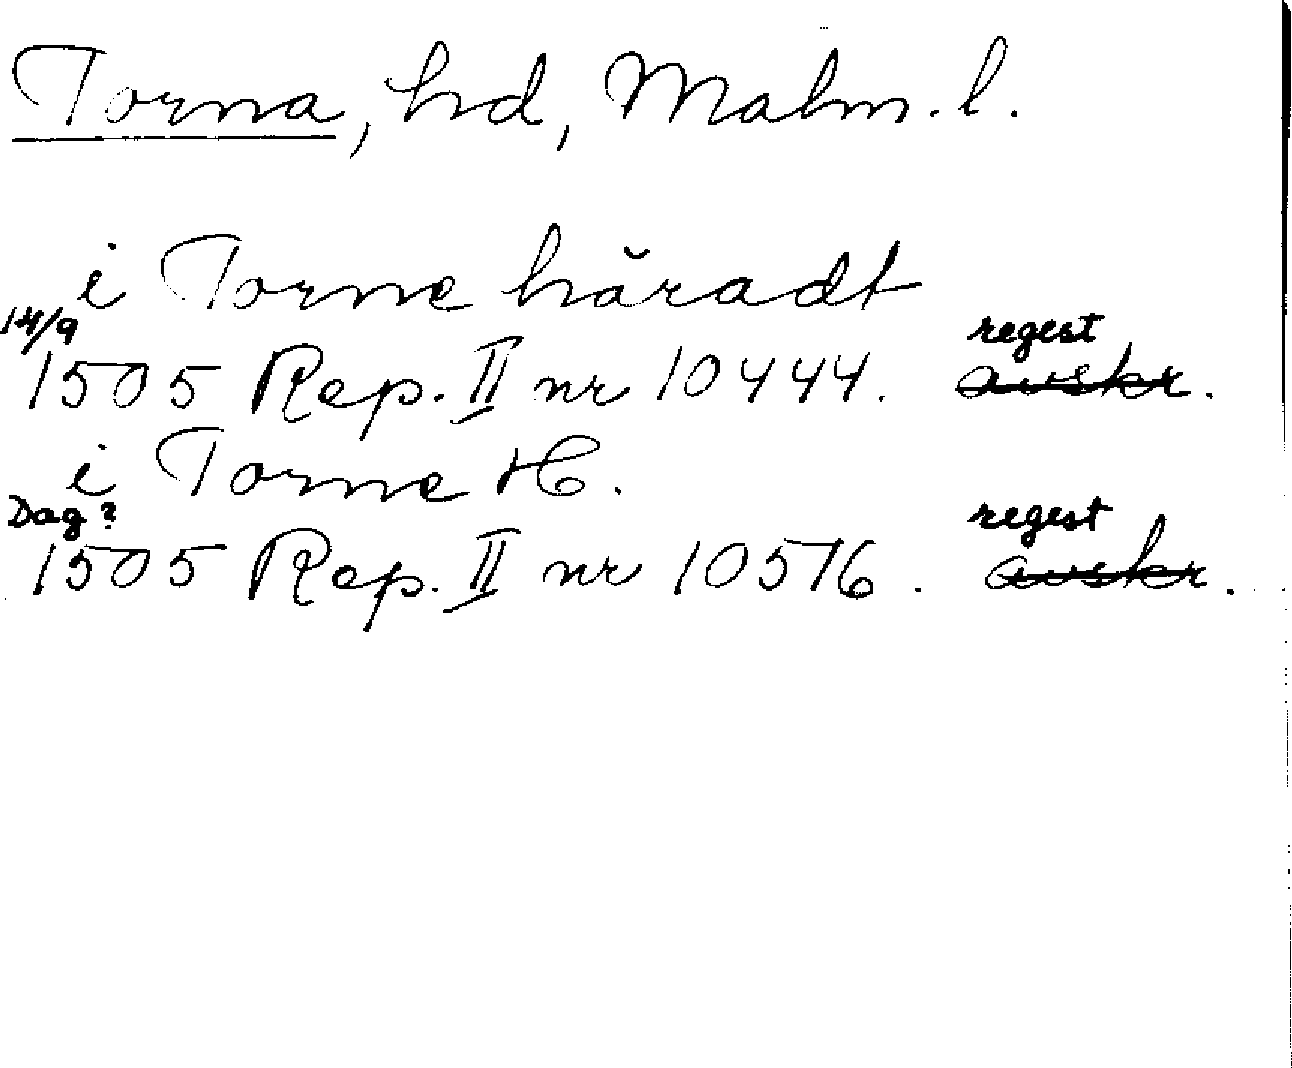 Torna, hd, Malm. l.
i Torne håradt
14/9
regest
1505 Rep. II nr 10444. avskr.
i Torne H.
Dag?
regest
1505 Rep. II nr 10516. avskr.